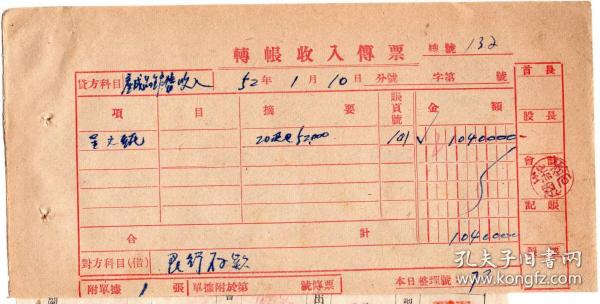 轉帳收入傳票 總號 132
貸方科目 產成品銷售收入 52年1月10日 分號 字第 號
項 目 摘 要 賬頁號 金 額
20 52,000 101 ✓ 1040000
合 計 1040000
對方科目(借) 銀行存款
附單據 1 張 單據附於第 號傳票 本日整理號
首長
股長
會計
記賬
孔夫子旧书网